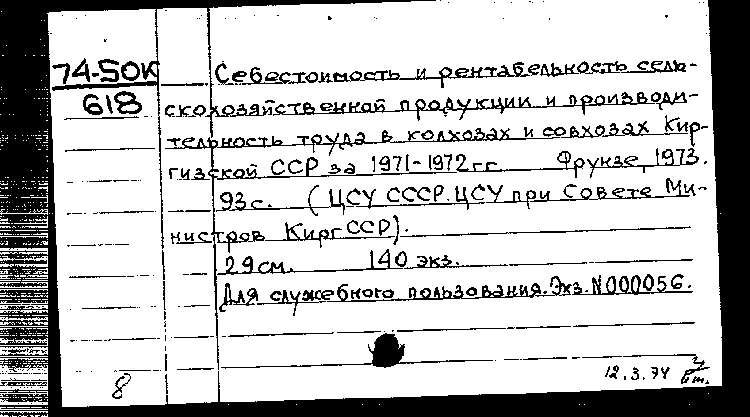 74-50К
618
Себестоимость и рентабельность сель-
скохозяйственной продукции и производи-
тельность труда в колхозах и совхозах Кир-
гизской ССР за 1971-1972 гг. Фрунзе, 1973.
93 с. (ЦСУ СССР. ЦСУ при Совете Ми-
нистров Кирг ССР).
29 см. 140 экз.
Для служебного пользования. Экз. N 000056.
8
12.3.74